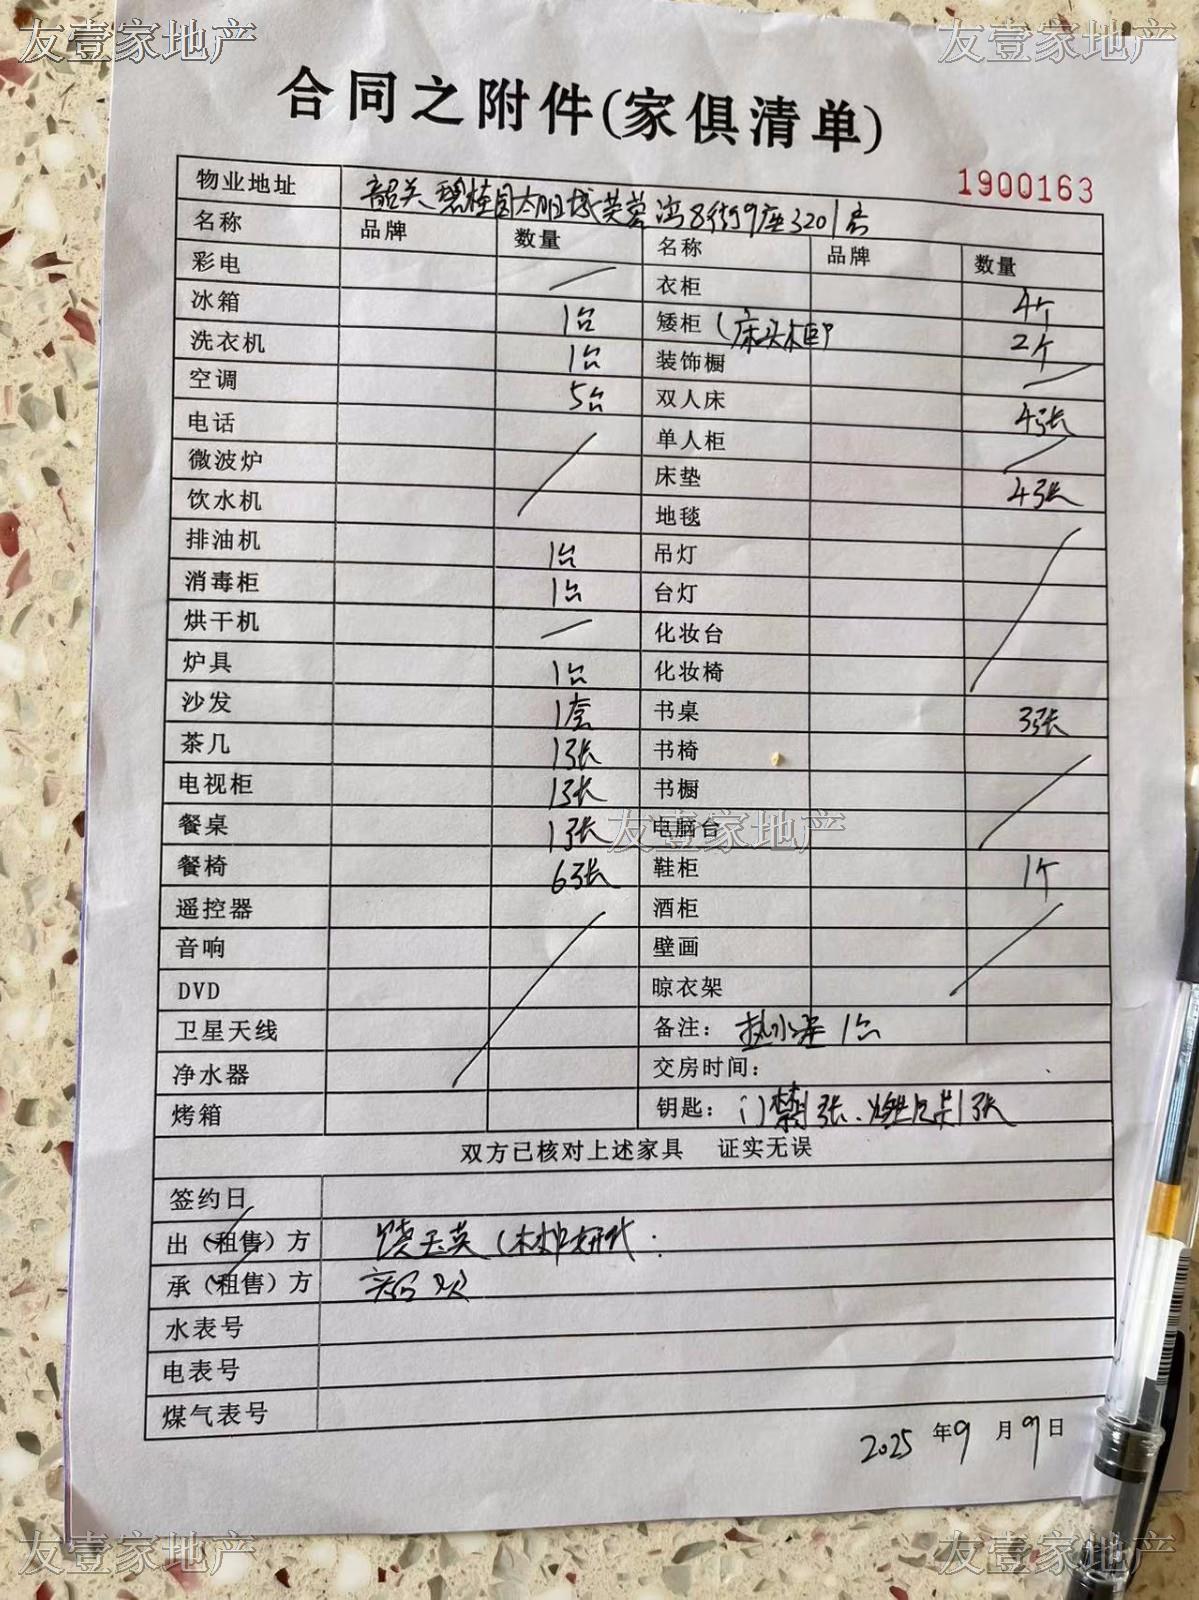 友壹家地产 友壹家地产
合同之附件(家俱清单)
1900163
物业地址 韶关碧桂园太阳城芙蓉湾8街9座3201房
名称 品牌 数量 名称 品牌 数量
彩电 / 衣柜 4个
冰箱 1台 矮柜 (床头柜) 2个
洗衣机 1台 装饰橱 /
空调 5台 双人床 4张
电话 单人柜 /
微波炉 / 床垫 4张
饮水机 地毯
排油机 1台 吊灯
消毒柜 1台 台灯 /
烘干机 / 化妆台
炉具 1台 化妆椅
沙发 1套 书桌 3张
茶几 1张 书椅
电视柜 1张 书橱 /
餐桌 1张 电脑台
友壹家地产
餐椅 6张 鞋柜 1个
遥控器 酒柜
音响 壁画 /
DVD / 晾衣架
卫星天线 备注: 热水器1台
净水器 交房时间:
烤箱 钥匙: 门禁1张、燃气卡1张
双方已核对上述家具 证实无误
签约日
出(租售)方 饶玉英
承(租售)方
水表号
电表号
煤气表号
2025 年 9 月 9 日
友壹家地产 友壹家地产